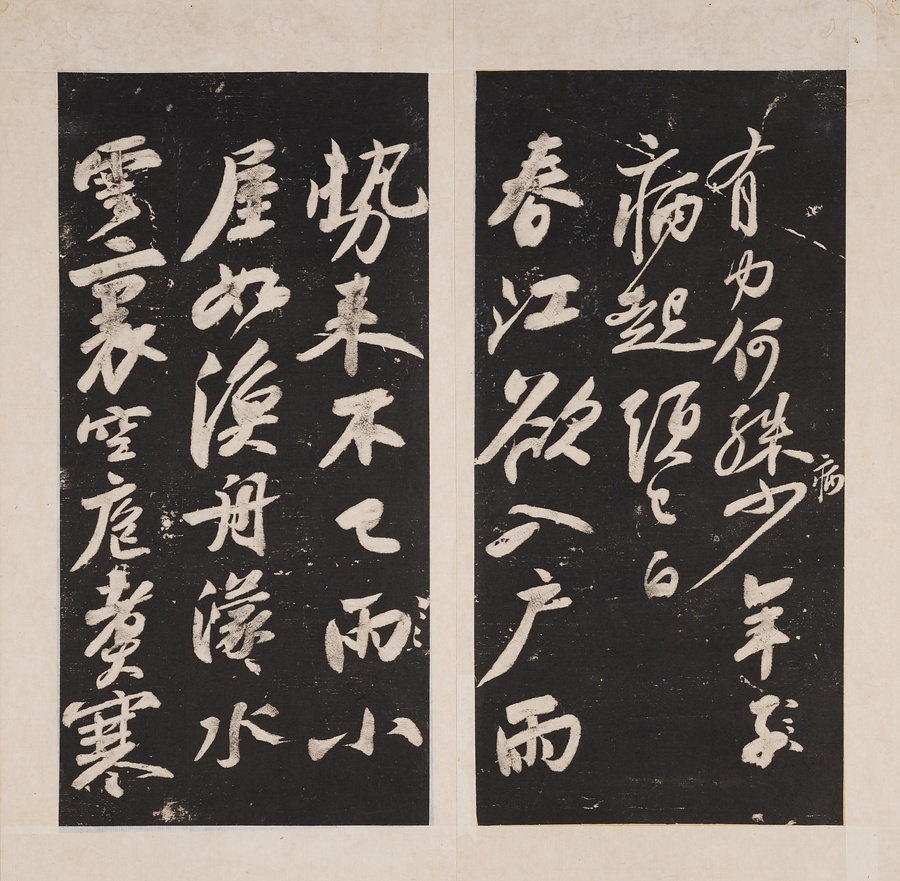 有力何殊病少年子
病起頭已白
春江欲入戶雨
勢來不已雨小
屋如漁舟濛〻水
雲裏空庖煮寒